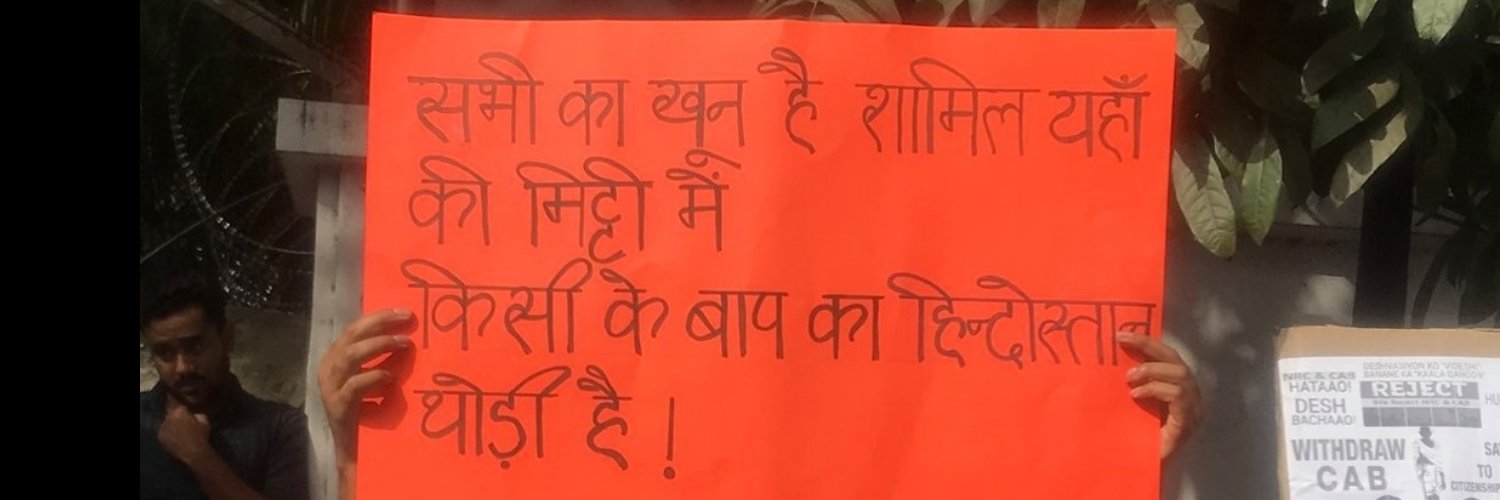 सभी का खून है शामिल यहाँ
की मिट्टी में
किसी के बाप का हिन्दोस्तान
थोड़ी है !
DESHVASIYON KO "VIDESHI"
BANANE KA "KAALA QANOON"
NRC & CAB
HATAAO!
DESH
BACHAAO!
REJECT
HU
WITHDRAW
CAB
SA
TO
CITIZENSHIP